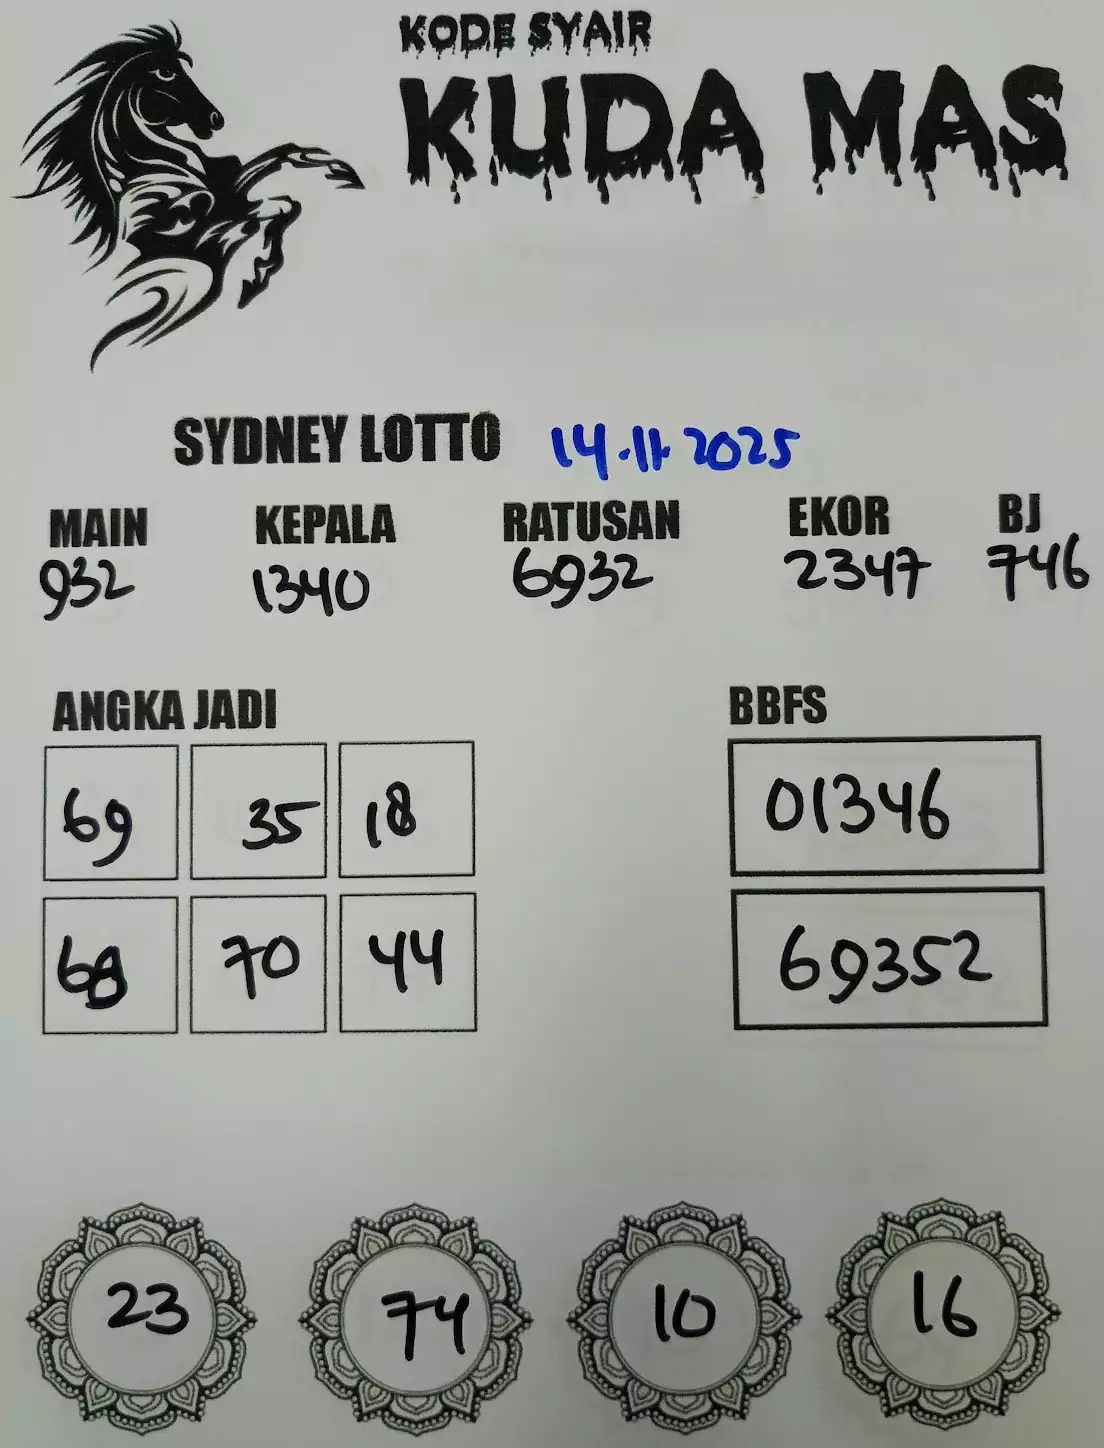 KODE SYAIR
KUDA MAS
SYDNEY LOTTO 14.11.2025
MAIN KEPALA RATUSAN EKOR BJ
932 1340 6932 2347 746
ANGKA JADI BBFS
69 35 18 01346
68 70 44 69352
23 74 10 16